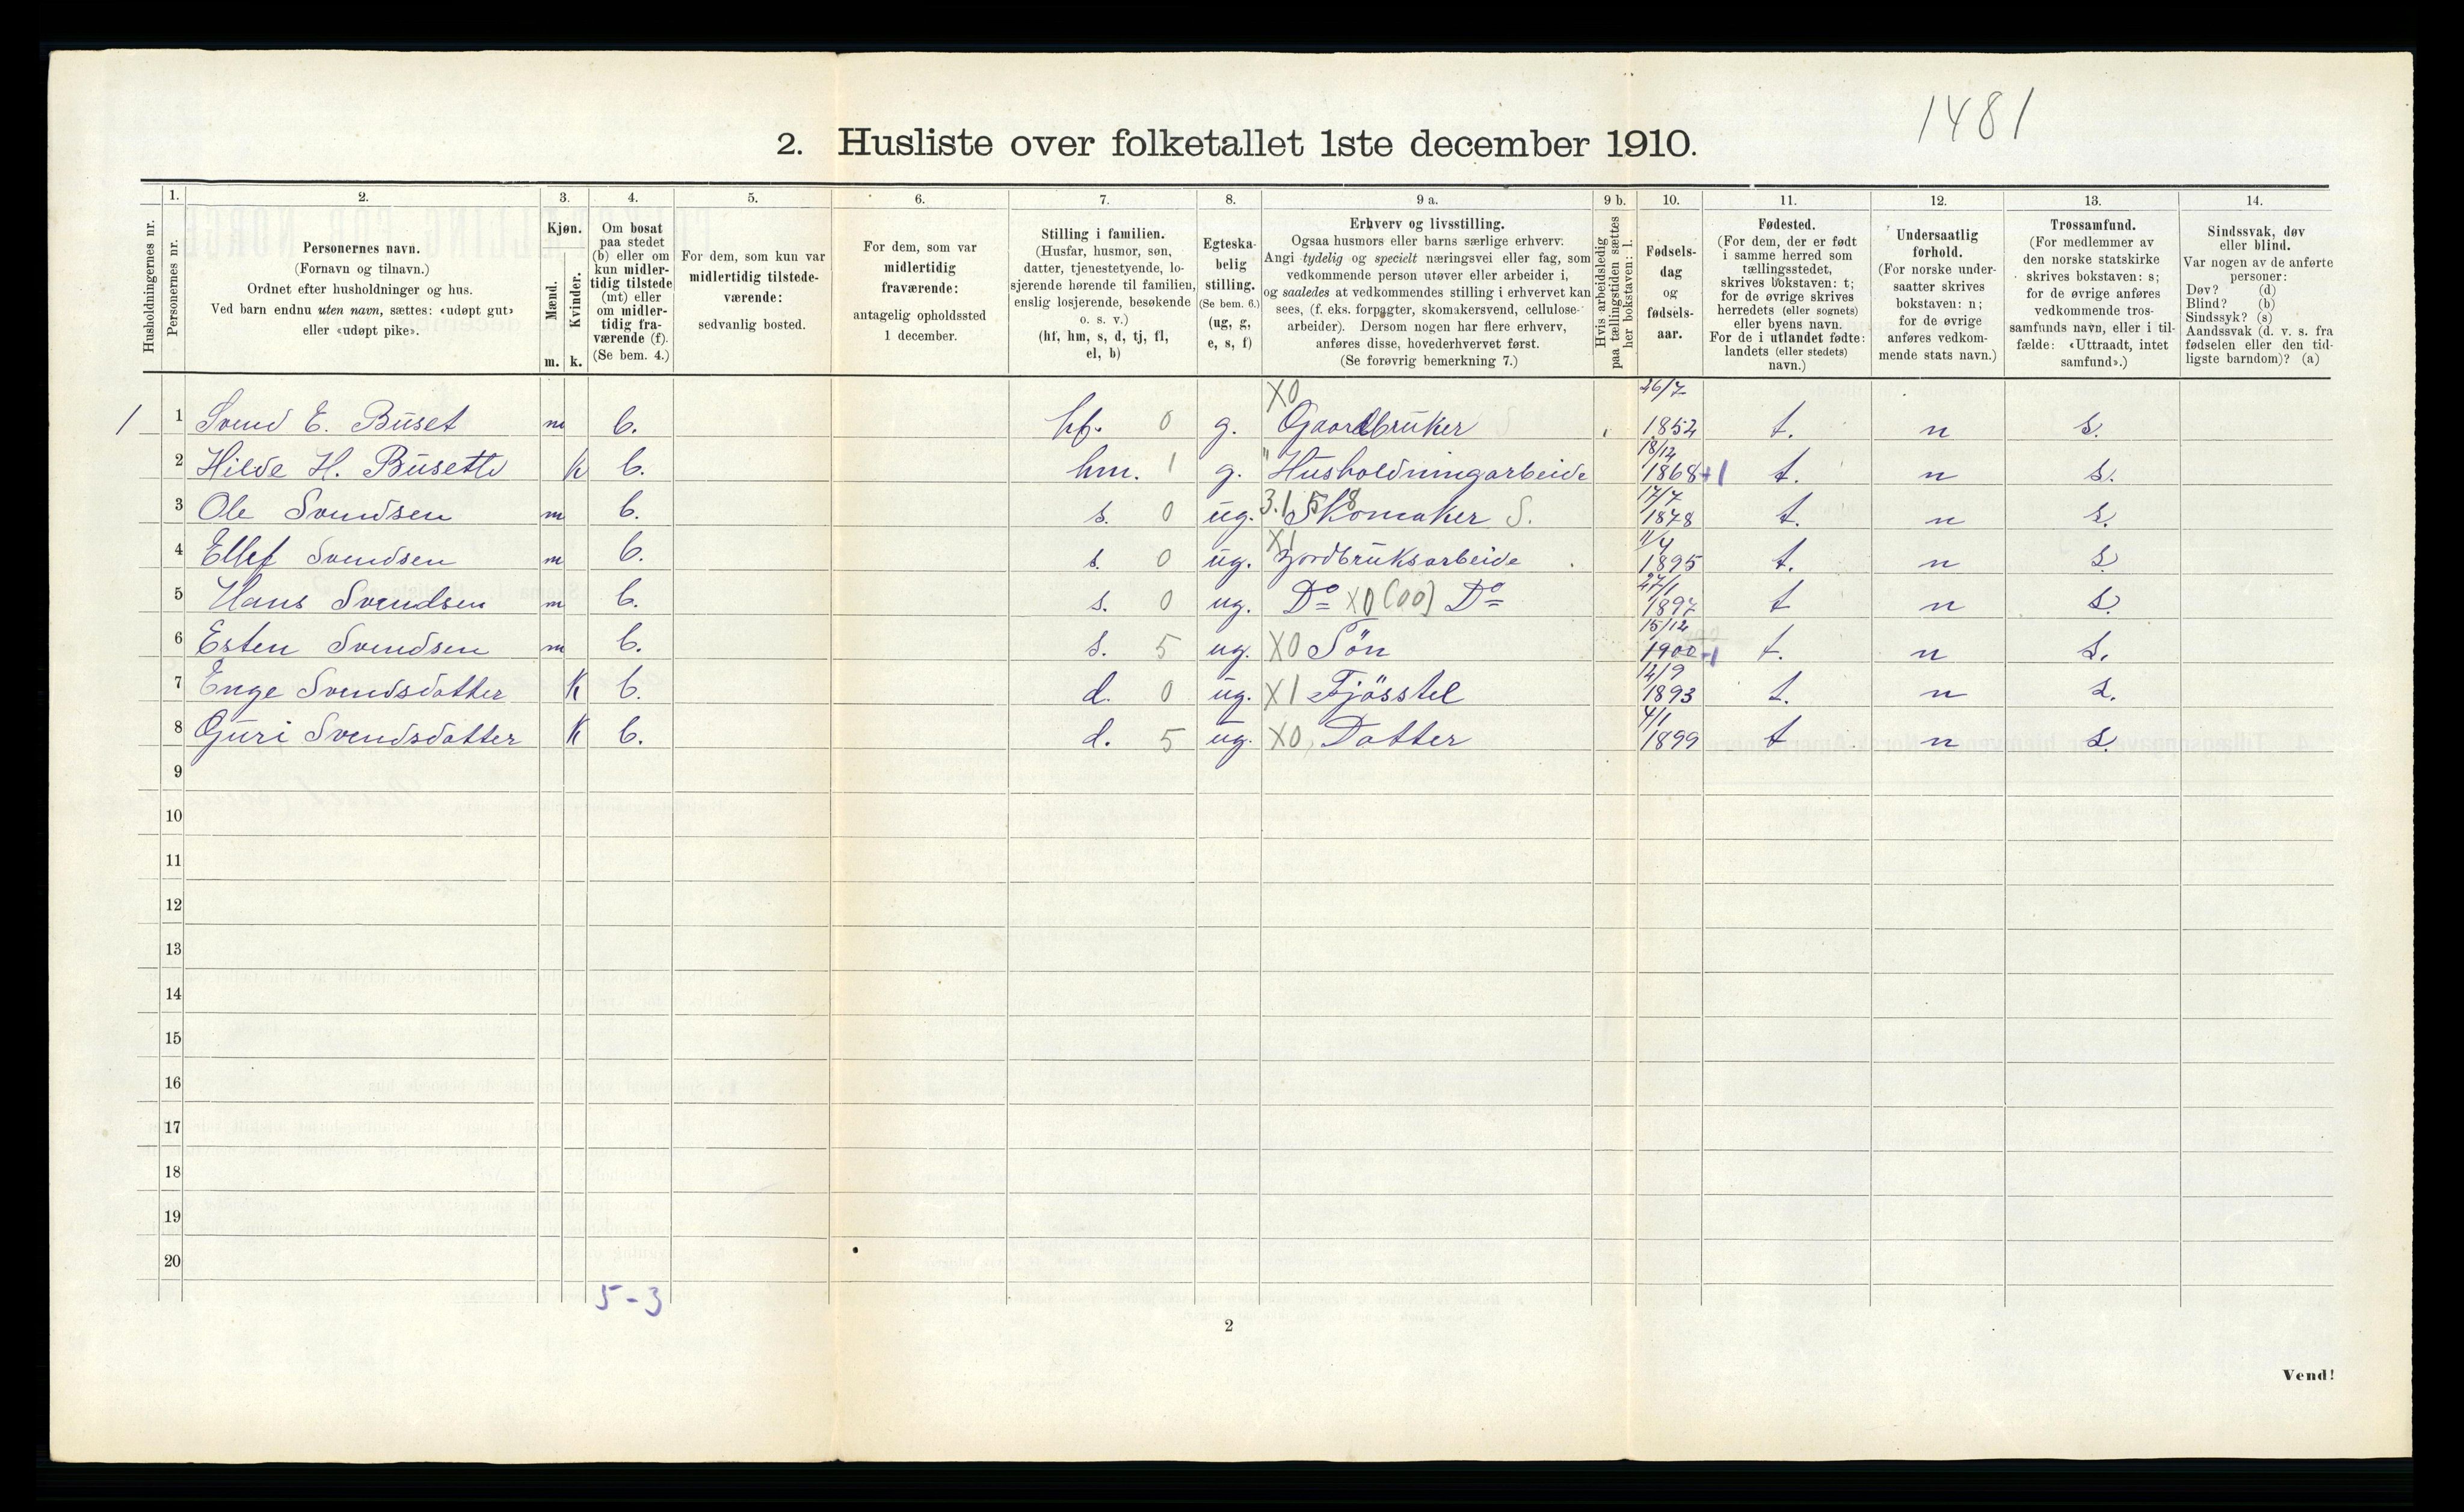 1481
2. Husliste over folketallet 1ste december 1910.
Husholdningernes nr.
1.
Personernes nr.
2.
Personernes navn.
(Fornavn og tilnavn.)
Ordnet efter husholdninger og hus.
Ved barn endnu uten navn, sættes: «udøpt gut»
eller «udøpt pike».
3.
Kjøn.
Mænd.
Kvinder.
m. k.
4.
Om bosat
paa stedet
(b) eller om
kun midler-
tidig tilstede
(mt) eller
om midler-
tidig fra-
værende (f).
(Se bem. 4.)
5.
For dem, som kun var
midlertidig tilstede-
værende:
sedvanlig bosted.
6.
For dem, som var
midlertidig
fraværende:
antagelig opholdssted
1 december.
7.
Stilling i familien.
(Husfar, husmor, søn,
datter, tjenestetyende, lo-
sjerende hørende til familien,
enslig losjerende, besøkende
o. s. v.)
(hf, hm, s, d, tj, fl,
el, b)
8.
Egteska-
belig
stilling.
(Se bem. 6.)
(ug, g,
e, s, f)
9 a.
Erhverv og livsstilling.
Ogsaa husmors eller barns særlige erhverv.
Angi tydelig og specielt næringsvei eller fag, som
vedkommende person utøver eller arbeider i,
og saaledes at vedkommendes stilling i erhvervet kan
sees, (f. eks. forpagter, skomakersvend, cellulose-
arbeider). Dersom nogen har flere erhverv,
anføres disse, hovederhvervet først.
(Se forøvrig bemerkning 7.)
9 b.
Hvis arbeidsledig
paa tællingstiden sættes
her bokstaven: l.
10.
Fødsels-
dag
og
fødsels-
aar.
11.
Fødested.
(For dem, der er født
i samme herred som
tællingsstedet,
skrives bokstaven: t;
for de øvrige skrives
herredets (eller sognets)
eller byens navn.
For de i utlandet fødte:
landets (eller stedets)
navn.)
12.
Undersaatlig
forhold.
(For norske under-
saatter skrives
bokstaven: n;
for de øvrige
anføres vedkom-
mende stats navn.)
13.
Trossamfund.
(For medlemmer av
den norske statskirke
skrives bokstaven: s;
for de øvrige anføres
vedkommende tros-
samfunds navn, eller i til-
fælde: «Uttraadt, intet
samfund».)
14.
Sindssvak, døv
eller blind.
Var nogen av de anførte
personer:
Døv? (d)
Blind? (b)
Sindssyk? (s)
Aandssvak (d. v. s. fra
fødselen eller den tid-
ligste barndom)? (a)
X0 26/7
1 1 Svend E. Buset m b. hf. 0 g. Gaardbruker 1852 t. n s.
18/12
2 Hilde H. Busett k b. hm. 1 g. " Husholdningarbeide 1868 +1 t. n s.
3.1 5 8 17/7
3 Ole Svendsen m b. s. 0 ug. Skomaker S. 1878 t. n s.
X1 11/4
4 Ellef Svendsen m b. s. 0 ug. Jordbruksarbeide 1895 t. n s.
27/1
5 Hans Svendsen m b. s. 0 ug. Do X0 (00) Do 1897 t n s.
15/12
6 Esten Svendsen m b. s. 5 ug. X0 Søn 1900 -1 t. n s.
14/9
7 Enge Svendsdatter K b. d. 0 ug. X1 Fjösstel 1893 t. n s.
4/1
8 Guri Svendsdatter K b. d. 5 ug. X0, Datter 1899 t n s.
9
10
11
12
13
14
15
16
17
18
19
20
5-3
2
Vend!